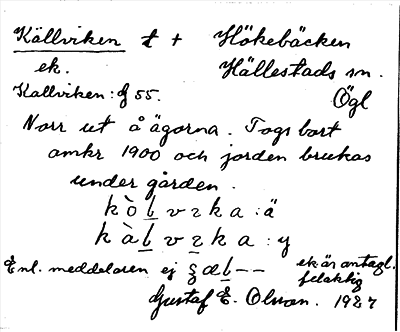 Källviken t + Hökebäcken
ek. Hällestads sn.
Kallviken: 55. Ögl
Norr ut å ägorna. Togs bort
omkr 1900 och jorden brukas
under gården.
k ò l v z k a : ä
k à l v z k a : y
Enl. meddelaren ej ʒ æ l -- ek. är antagl.
felaktig
Gustaf E. Olsson. 1927